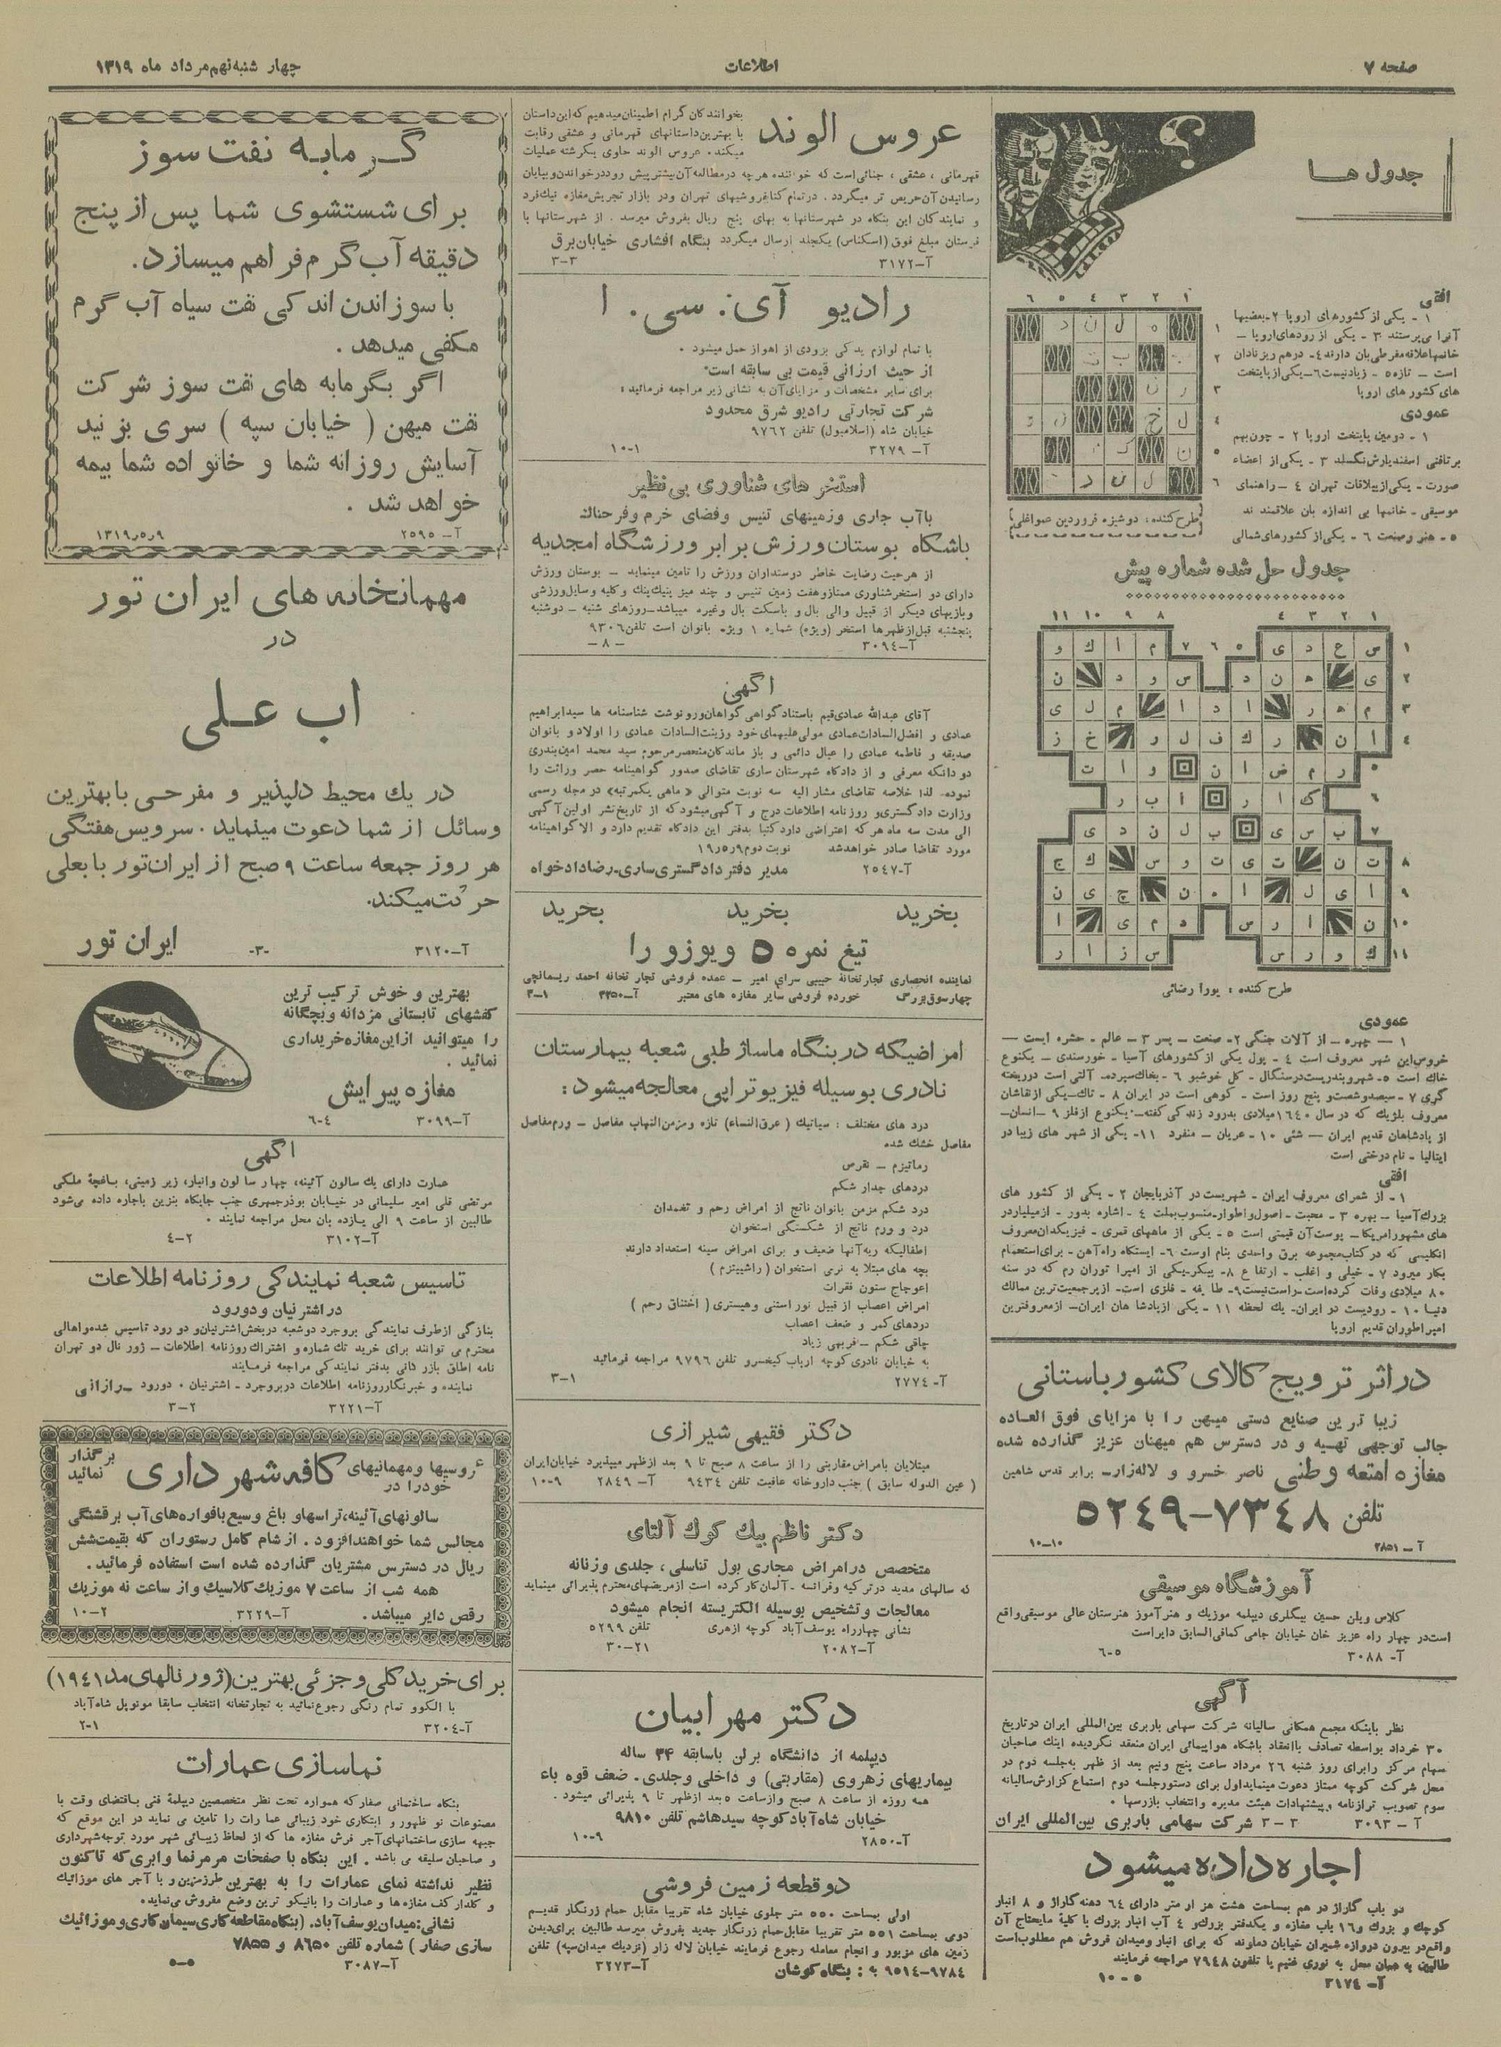 صفحه ۷
اطلاعات
چهار شنبه نهم مرداد ماه ۱۳۱۹
جدول ها
افقی
۱ - یکی از کشورهای اروپا ۲- بعضیها
آنرا می‌پرستند ۳ - یکی از رودهای اروپا -
خانمها علاقه مفرطی بان دارند ۴- درهم ریز نادان
است - تازه ۵ - زیاد نیست ۶ - یکی از پایتخت
های کشور های اروپا
عمودی
۱ - دومین پایتخت اروپا ۲ - چون بهم
بر تافتی اسفندیارش نگسلد ۳ - یکی از اعضاء
صورت - یکی از ییلاقات تهران ۴ - راهنمای
موسیقی - خانمها بی اندازه بان علاقمند ند
۵ - هنر و صنعت ۶ - یکی از کشورهای شمالی
طرح کننده: دوشیزه فروردین صواغلی
جدول حل شده شماره پیش
طرح کننده : پورا رضائی
عمودی
۱ - چهره - از آلات جنگی ۲- صنعت - پسر ۳ - عالم - حشره ایست -
خروس این شهر معروف است ۴ - پول یکی از کشورهای آسیا - خورسندی - یکنوع
خاک است ۵- شهر و بندریست در سنگال - گل خوشبو ۶ - بخاک سپرده. آلتی است در ریخته
گری ۷ - سیصد و شصت و پنج روز است - کوهی است در ایران ۸ - تاک - یکی از نقاشان
معروف بلژیک که در سال ۱۶۴۰ میلادی بدرود زندگی گفته - یکنوع از فلز ۹ - انسان-
از پادشاهان قدیم ایران - شئی ۱۰ - عریان - منفرد ۱۱- یکی از شهر های زیبا در
ایتالیا - نام درختی است
افقی
۱ - از شعرای معروف ایران - شهریست در آذربایجان ۲ - یکی از کشور های
بزرک آسیا - بهره ۳ - محبت - اصول و اطوار - منسوب بملت ۴ - اشاره بدور - از میلیاردر
های مشهور امریکا - پوست آن قیمتی است ۵ - یکی از ماههای قمری - فیزیکدان معروف
انگلیسی که در کتاب مجموعه برق واحدی بنام اوست ۶- ایستگاه راه آهن - برای استحمام
بکار میرود ۷ - خیلی و اغلب - ارتفاع ۸- پیکر - یکی از امپراتوران رم که در سنه
۸۰ میلادی وفات کرده است - راست نیست ۹- طایفه - فلزی است - از پرجمعیت ترین ممالک
دنیا ۱۰ - رودیست در ایران - یک لحظه ۱۱ - یکی از پادشاهان ایران - از معروفترین
امپراطوران قدیم اروپا
در اثر ترویج کالای کشور باستانی
زیبا ترین صنایع دستی میهن را با مزایای فوق العاده
جالب توجهی تهیه و در دسترس هم میهنان عزیز گذارده شده
مغازه امتعه وطنی ناصر خسرو و لاله‌زار - برابر قدس شاهین
تلفن ۷۳۴۸-۵۲۴۹
آ - ۲۸۵۱ ۱۰-۱۰
آموزشگاه موسیقی
کلاس ویلن حسین بیگلری دیپلمه موزیک و هنرآموز هنرستان عالی موسیقی واقع
است در چهار راه عزیز خان خیابان جامی کمافی السابق دایر است
آ- ۳۰۸۸ ۶-۵
آگهی
نظر باینکه مجمع همگانی سالیانه شرکت سهامی باربری بین‌المللی ایران در تاریخ
۳۰ خرداد بواسطه تصادف باانعقاد باشگاه هواپیمائی ایران منعقد نگردیده اینک صاحبان
سهام مرکز را برای روز شنبه ۲۶ مرداد ساعت پنج ونیم بعد از ظهر به جلسه دوم در
محل شرکت کوچه ممتاز دعوت مینماید اول برای دستور جلسه دوم استماع گزارش سالیانه
سوم تصویب ترازنامه و پیشنهادات هیئت مدیره و انتخاب بازرسها .
آ - ۳۰۹۳ ۳-۳ شرکت سهامی باربری بین‌المللی ایران
اجاره داده میشود
دو باب گاراژ در هم بمساحت هشت هزار متر دارای ۶۴ دهنه گاراژ و ۸ انبار
کوچک و بزرک و ۱۶ باب مغازه و یکدفتر بزرک و ۴ آب انبار بزرک با کلیه مایحتاج آن
واقع در بیرون دروازه شمیران خیابان دماوند که برای انبار ومیدان فروش هم مطلوب است
طالبین به همان محل به نوری غنیم یا تلفون ۷۹۴۸ مراجعه فرمایند
آ- ۳۱۷۴ ۱۰-۵
عروس الوند
بخوانندگان گرام اطمینان میدهیم که این داستان
با بهترین داستانهای قهرمانی و عشقی رقابت
میکند. عروس الوند حاوی یکرشته عملیات
قهرمانی ، عشقی ، جنائی است که خواننده هر چه در مطالعه آن بیشتر پیش رود در خواندن و بپایان
رسانیدن آن حریص تر میگردد . در تمام کتابفروشیهای تهران ودر بازار تجریش مغازه نیک فرد
و نمایندگان این بنگاه در شهرستانها به بهای پنج ریال بفروش میرسد . از شهرستانها با
فرستادن مبلغ فوق (اسکناس) یکجلد ارسال میگردد بنگاه افشاری خیابان برق
آ-۳۱۷۲ ۳-۳
رادیو آی. سی. ا
با تمام لوازم یدکی بزودی از اهواز حمل میشود .
از حیث ارزانی قیمت بی سابقه است.
برای سایر مشخصات و مزایای آن به نشانی زیر مراجعه فرمائید:
شرکت تجارتی رادیو شرق محدود
خیابان شاه (اسلامبول) تلفن ۹۷۶۲
آ- ۳۲۷۹ ۱۰-۱
استخر های شناوری بی نظیر
باآب جاری وزمینهای تنیس وفضای خرم و فرحناک
باشگاه بوستان ورزش برابر ورزشگاه امجدیه
از هر حیث رضایت خاطر دوستداران ورزش را تامین مینماید - بوستان ورزش
دارای دو استخر شناوری ممتاز وهفت زمین تنیس و چند میز پنیک‌پنک و کلیه وسایل ورزشی
و بازیهای دیگر از قبیل والی بال و باسکت بال وغیره میباشد - روزهای شنبه - دوشنبه
پنجشنبه قبل از ظهرها استخر (ویژه) شماره ۱ ویژه بانوان است تلفن ۹۳۰۶
آ-۳۰۹۴ -۸-
آگهی
آقای عبدالله عمادی قیم باستناد گواهی گواهان ورونوشت شناسنامه ها سیدابراهیم
عمادی و افضل السادات عمادی مولی علیهمای خود وزینت السادات عمادی را اولاد و بانوان
صدیقه و فاطمه عمادی را عیال دائمی و باز ماندگان منحصر مرحوم سید محمد امین بندری
دو دانگه معرفی و از دادگاه شهرستان ساری تقاضای صدور گواهینامه حصر وراثت را
نموده. لذا خلاصه تقاضای مشار الیه سه نوبت متوالی «ماهی یکمرتبه» در مجله رسمی
وزارت دادگستری و روزنامه اطلاعات درج و آگهی میشود که از تاریخ نشر اولین آگهی
الی مدت سه ماه هر که اعتراضی دارد کتبا بدفتر این دادگاه تقدیم دارد و الا گواهینامه
مورد تقاضا صادر خواهد شد نوبت دوم ۱۹ر۵ر۹
آ-۲۵۴۷ مدیر دفتر دادگستری ساری - رضا دادخواه
بخرید بخرید بخرید
تیغ نمره ۵ ویوزو را
نماینده انحصاری تجارتخانه حبیبی سرای امیر - عمده فروشی تجارتخانه احمد ریسمانچی
چهارسوق بزرگ خورده فروشی سایر مغازه های معتبر آ-۳۳۵۰ ۳-۱
امراضیکه در بنگاه ماساژ طبی شعبه بیمارستان
نادری بوسیله فیزیوتراپی معالجه میشود:
درد های مختلف : سیاتیک (عرق النساء) تازه ومزمن التهاب مفاصل - ورم مفاصل
مفاصل خشک شده
رماتیزم - نقرس
دردهای جدار شکم
درد شکم مزمن بانوان ناتج از امراض رحم و تخمدان
درد و ورم ناتج از شکستگی استخوان
اطفالیکه ریه آنها ضعیف و برای امراض سینه استعداد دارند
بچه های مبتلا به نرمی استخوان (راشیتزم)
اعوجاج ستون فقرات
امراض اعصاب از قبیل نوراستنی وهیستری (اختناق رحم)
دردهای کمر و ضعف اعصاب
چاقی شکم - فربهی زیاد
به خیابان نادری کوچه ارباب کیخسرو تلفن ۹۷۹۶ مراجعه فرمائید
آ- ۲۷۷۴ ۳-۱
دکتر فقیهی شیرازی
مبتلایان بامراض مقاربتی را از ساعت ۸ صبح تا ۹ بعد از ظهر میپذیرد خیابان ایران
( عین الدوله سابق ) جنب داروخانه عافیت تلفن ۹۴۳۴ آ- ۲۸۴۹ ۱۰-۹
دکتر ناظم بیک کوک آلتای
متخصص در امراض مجاری بول تناسلی ، جلدی وزنانه
که سالهای مدید در ترکیه وفرانسه - آلمان کار کرده است از مریضهای محترم پذیرائی مینماید
معالجات وتشخیص بوسیله الکتریسته انجام میشود
نشانی چهارراه یوسف آباد کوچه ازهری تلفن ۵۲۹۹
آ-۲۰۸۲ ۳۰-۲۱
دکتر مهرابیان
دیپلمه از دانشگاه برلن باسابقه ۳۴ ساله
بیماریهای زهروی (مقاربتی) و داخلی وجلدی - ضعف قوه باء
همه روزه از ساعت ۸ صبح وازساعت ۵ بعد ازظهر تا ۹ پذیرائی میشود .
خیابان شاه آباد کوچه سید هاشم تلفن ۹۸۱۰
آ-۲۸۵۰ ۱۰-۹
دو قطعه زمین فروشی
اولی بمساحت ۵۵۰ متر جلوی خیابان شاه تقریبا مقابل حمام زرنگار قدیم
دومی بمساحت ۵۵۱ متر تقریبا مقابل حمام زرنگار جدید بفروش میرسد طالبین برای دیدن
زمین های مزبور و انجام معامله رجوع فرمایند خیابان لاله زار (نزدیک میدان سپه) تلفن
۹۵۱۴-۹۷۸۴ به : بنگاه کوشان آ-۳۲۷۳
گرمابه نفت سوز
برای شستشوی شما پس از پنج
دقیقه آب گرم فراهم میسازد.
با سوزاندن اندکی نفت سیاه آب گرم
مکفی میدهد .
اگر بگرمابه های نفت سوز شرکت
نفت میهن ( خیابان سپه ) سری بزنید
آسایش روزانه شما و خانواده شما بیمه
خواهد شد .
آ- ۲۵۹۵ ۱۳۱۹ر۵ر۹
مهمانخانه های ایران تور
در
اب علی
در یک محیط دلپذیر و مفرحی با بهترین
وسائل از شما دعوت مینماید . سرویس هفتگی
هر روز جمعه ساعت ۹ صبح از ایران‌تور بابعلی
حرکت میکند.
آ-۳۱۲۰ -۳- ایران تور
بهترین و خوش ترکیب ترین
کفشهای تابستانی مردانه و بچگانه
را میتوانید از این مغازه خریداری
نمائید .
مغازه پیرایش
آ-۳۰۹۹ ۶-۴
آگهی
عمارت دارای یک سالون آئینه، چهار سالون وانبار، زیر زمینی، باغچه ملکی
مرتضی قلی امیر سلیمانی در خیابان بوذرجمهری جنب جایگاه بنزین باجاره داده می‌شود
طالبین از ساعت ۹ الی یازده بان محل مراجعه نمایند .
آ-۳۱۰۲ ۴-۲
تاسیس شعبه نمایندگی روزنامه اطلاعات
در اشترنیان و دورود
بتازگی از طرف نمایندگی بروجرد دوشعبه دربخش اشترنیان و دورود تاسیس شده و اهالی
محترم می توانند برای خرید تک شماره و اشتراک روزنامه اطلاعات - ژورنال دو تهران
نامه اطاق بازرگانی بدفتر نمایندگی مراجعه فرمایند
نماینده و خبرنگار روزنامه اطلاعات در بروجرد - اشترنیان . دورود - رازانی
آ-۳۲۲۱ ۳-۲
عروسیها ومهمانیهای خودرا در کافه شهرداری برگذار نمائید
سالونهای آئینه، تراسها و باغ وسیع با فواره‌های آب بر قشنگی
مجالس شما خواهند افزود . از شام کامل رستوران که بقیمت شش
ریال در دسترس مشتریان گذارده شده است استفاده فرمائید.
همه شب از ساعت ۷ موزیک کلاسیک و از ساعت نه موزیک
رقص دایر میباشد. آ-۳۲۲۹ ۱۰-۲
برای خرید کلی و جزئی بهترین (ژورنالهای مد ۱۹۴۱)
با الگوو تمام رنگی رجوع نمائید به تجارتخانه انتخاب سابقا مونوپل شاه‌آباد
آ-۳۲۰۴ ۲-۱
نماسازی عمارات
بنگاه ساختمانی صفار که همواره تحت نظر متخصصین دیپلمه فنی باقتضای وقت با
مصنوعات نو ظهور و ابتکاری خود زیبائی عمارات را تامین می نماید در این موقع که
جبهه سازی ساختمانهای آجر فرش مغازه ها که از لحاظ زیبائی شهر مورد توجه شهرداری
و صاحبان سلیقه می باشد . این بنگاه با صفحات مرمرنما وابری که تاکنون
نظیر نداشته نمای عمارات را به بهترین طرز مزین و با آجر های موزائیک
و گلدار کف مغازه ها و عمارات را بانیکو ترین وضع مفروش می‌نماید.
نشانی: میدان یوسف آباد. (بنگاه مقاطعه کاری سیمان کاری و موزائیک
سازی صفار ) شماره تلفن ۸۶۵۰ و ۷۸۵۵
آ-۳۰۸۷ ۵-۵